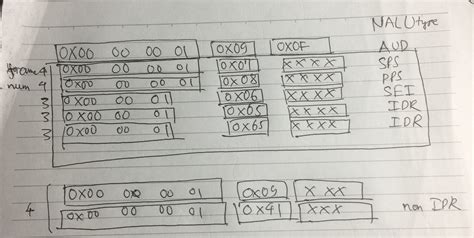 NALUtype
0X00 00 00 01 0X09 0X0F AUD
frame 4 0X00 00 00 01 0X07 XXXX SPS
num 4 0X00 00 00 01 0X08 XXXX PPS
3 0X00 00 01 0X06 XXXX SEI
3 0X00 00 01 0X65 XXXX IDR
3 0X00 00 01 0X65 XXXX IDR
4 0X00 00 00 01 0X09 X XX
0X00 00 00 01 0X41 XXX non IDR